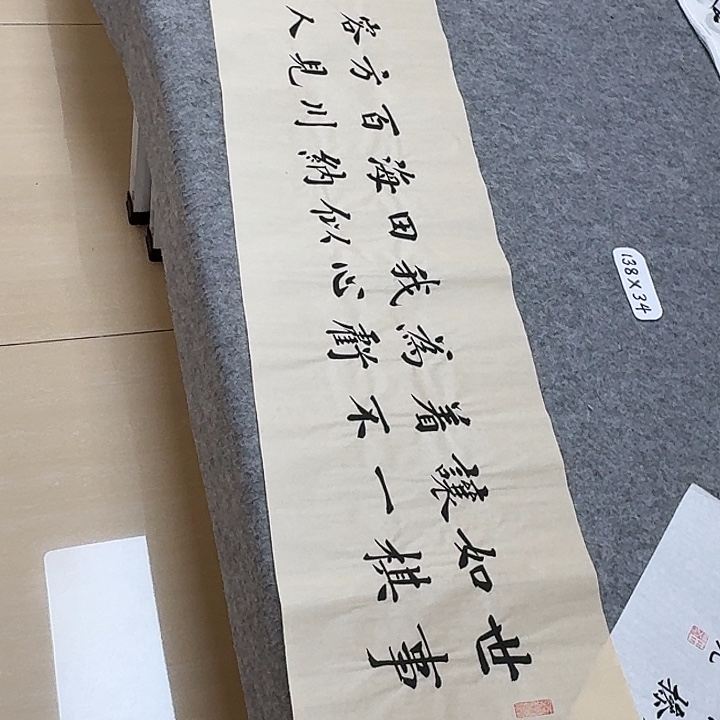 世事
如棋
讓一
着不
為虧
我心
田似
海納
百川
方見
容人
138X34